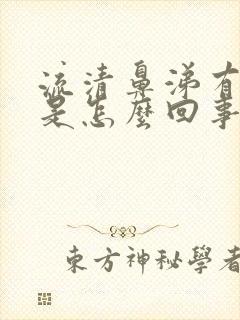 流清鼻涕有
是怎麼回事
東方神秘學者